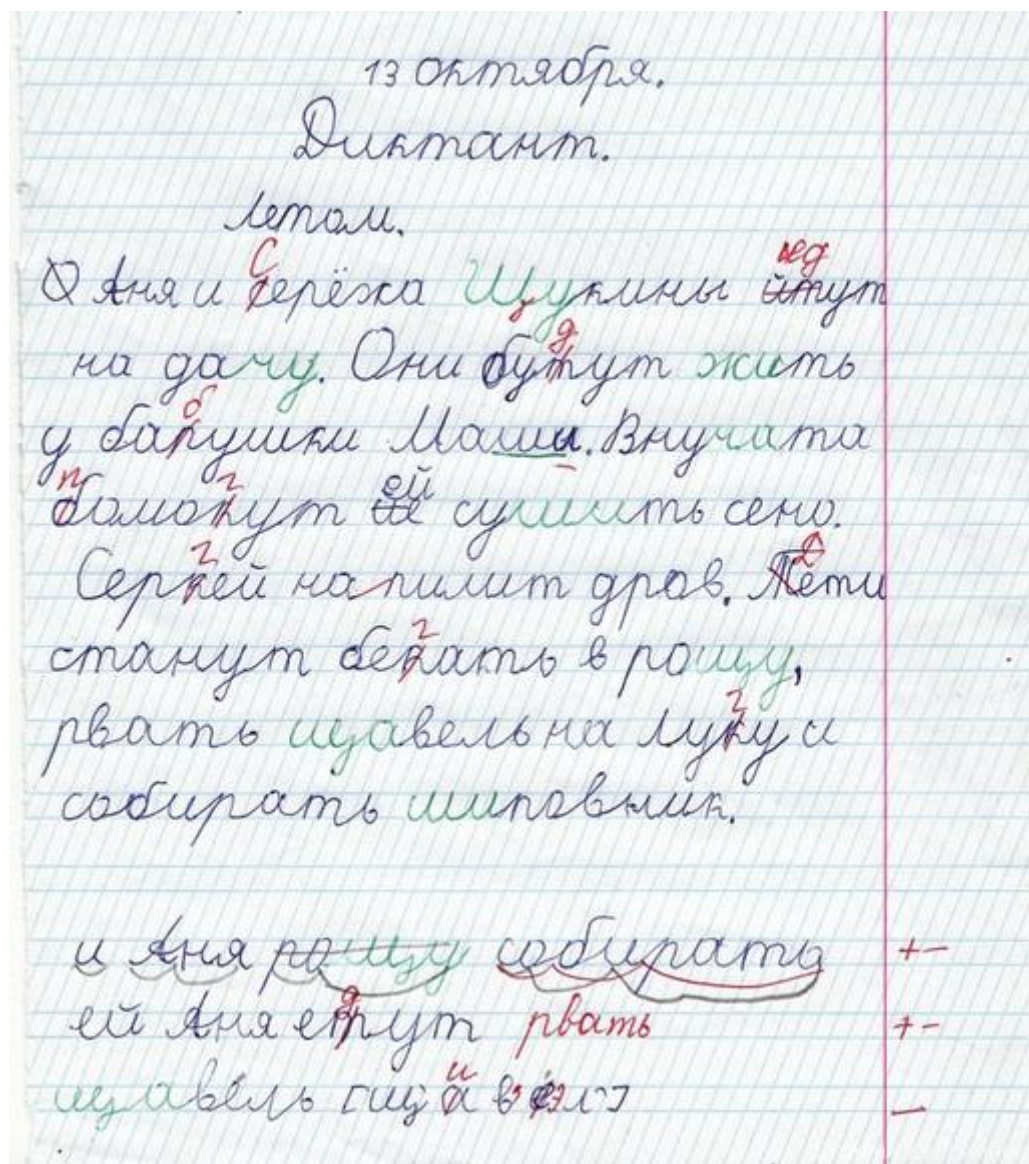 13 октября.
Диктант.
Летом.
Аня и серёжа Щукины йтут
на дачу. Они бутут жить
у бапушки Машы. Внучата
бомокут ей сушить сено.
Серкей напилит дров. Тети
станут бекать в рощу,
рвать щавель на луку и
собирать шиповник.
и Аня рощу собирать +-
ей Аня етут рвать +-
щавель –